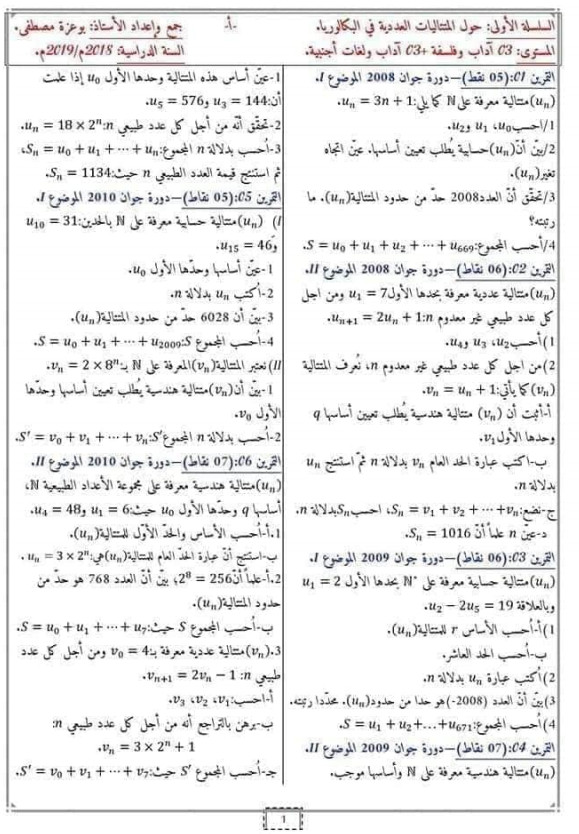 السلسلة الأولى: حول المتتاليات العددية في البكالوريا. -أ- جمع وإعداد الأستاذ: بوعزة مصطفى.
المستوى: C3 آداب وفلسفة +C3 آداب ولغات أجنبية. السنة الدراسية: 2018م/2019م.
التمرين C1:(05 نقط)—دورة جوان 2008 الموضوع I.
(uₙ)متتالية معرفة على ℕ كما يلي: uₙ = 3n + 1.
1/احسب u₀، u₁ و u₂.
2/بيّن أنّ(uₙ)حسابية يُطلب تعيين أساسها. عيّن اتجاه
تغير(uₙ).
3/تحقّق أنّ العدد2008 حدّ من حدود المتتالية(uₙ). ما
رتبته؟
4/أحسب المجموع: S = u₀ + u₁ + u₂ + ⋯ + u₆₆₉.
التمرين C2:(06 نقط)—دورة جوان 2008 الموضوع II.
(uₙ)متتالية عددية معرفة بحدها الأول u₁ = 7 ومن اجل
كل عدد طبيعي غير معدوم n: uₙ₊₁ = 2uₙ + 1.
1)أحسب u₂، u₃ و u₄.
2)من اجل كل عدد طبيعي غير معدوم n، نُعرف المتتالية
(vₙ) كما يأتي: vₙ = uₙ + 1.
أ-أثبت أن (vₙ) متتالية هندسية يُطلب تعيين أساسها q
وحدها الأول v₁.
ب-اكتب عبارة الحد العام vₙ بدلالة n ثمّ استنتج uₙ
بدلالة n.
ج-نضع: Sₙ = v₁ + v₂ + ⋯ + vₙ، احسب Sₙ بدلالة n.
د-عيّن n علماً أنّ Sₙ = 1016.
التمرين C3:(06 نقط)—دورة جوان 2009 الموضوع I.
(uₙ)متتالية حسابية معرفة على ℕ* بحدها الأول u₁ = 2
وبالعلاقة u₂ − 2u₅ = 19.
1)أ-أحسب الأساس r للمتتالية(uₙ).
ب-احسب الحد العاشر.
2)أكتب عبارة uₙ بدلالة n.
3)بيّن أنّ العدد (2008-)هو حدا من حدود(uₙ). محددا رتبته.
4)أحسب المجموع: S = u₁ + u₂+...+u₆₇₁.
التمرين C4:(07 نقط)—دورة جوان 2009 الموضوع II.
(uₙ)متتالية هندسية معرفة على ℕ وأساسها موجب.
1-عيّن أساس هذه المتتالية وحدها الأول u₀ إذا علمت
أن: u₃ = 144 و u₅ = 576.
2-تحقّق أنّه من أجل كل عدد طبيعي n: uₙ = 18 × 2ⁿ.
3-أحسب بدلالة n المجموع: Sₙ = u₀ + u₁ + ⋯ + uₙ،
ثم استنتج قيمة العدد الطبيعي n حيث: Sₙ = 1134.
التمرين C5:(05 نقاط)—دورة جوان 2010 الموضوع I.
I) (uₙ)متتالية حسابية معرفة على ℕ بالحدين: u₁₀ = 31
و u₁₅ = 46.
1-عيّن أساسها وحدّها الأول u₀.
2-أكتب uₙ بدلالة n.
3-بيّن أن 6028 حدّ من حدود المتتالية(uₙ).
4-أحسب المجموع S: S = u₀ + u₁ + ⋯ + u₂₀₀₉.
II)نعتبر المتتالية(vₙ)المعرفة على ℕ بـ: vₙ = 2 × 8ⁿ.
1-بيّن أن(vₙ)متتالية هندسية يُطلب تعيين أساسها وحدّها
الأول v₀.
2-أحسب بدلالة n المجموع S′: S′ = v₀ + v₁ + ⋯ + vₙ.
التمرين C6:(07 نقاط)—دورة جوان 2010 الموضوع II.
(uₙ)متتالية هندسية معرفة على مجموعة الأعداد الطبيعية ℕ،
أساسها q وحدّها الأول u₀ حيث: u₁ = 6 و u₄ = 48.
1.أ-أحسب الأساس والحدّ الأوّل للمتتالية(uₙ).
ب-استنتج أنّ عبارة الحدّ العام للمتتالية(uₙ)هي: uₙ = 3 × 2ⁿ.
2.أ-علماً أنّ 2⁸ = 256؛ بيّن أنّ العدد 768 هو حدّ من
حدود المتتالية(uₙ).
ب-أحسب المجموع S حيث: S = u₀ + u₁ + ⋯ + u₇.
3.(vₙ)متتالية عددية معرفة بـ: v₀ = 4 ومن أجل كل عدد
طبيعي n: vₙ₊₁ = 2vₙ − 1.
أ-احسب: v₁، v₂، v₃.
ب-برهن بالتراجع أنه من أجل كل عدد طبيعي n:
vₙ = 3 × 2ⁿ + 1.
جـ-أحسب المجموع S′ حيث: S′ = v₀ + v₁ + ⋯ + v₇.
1